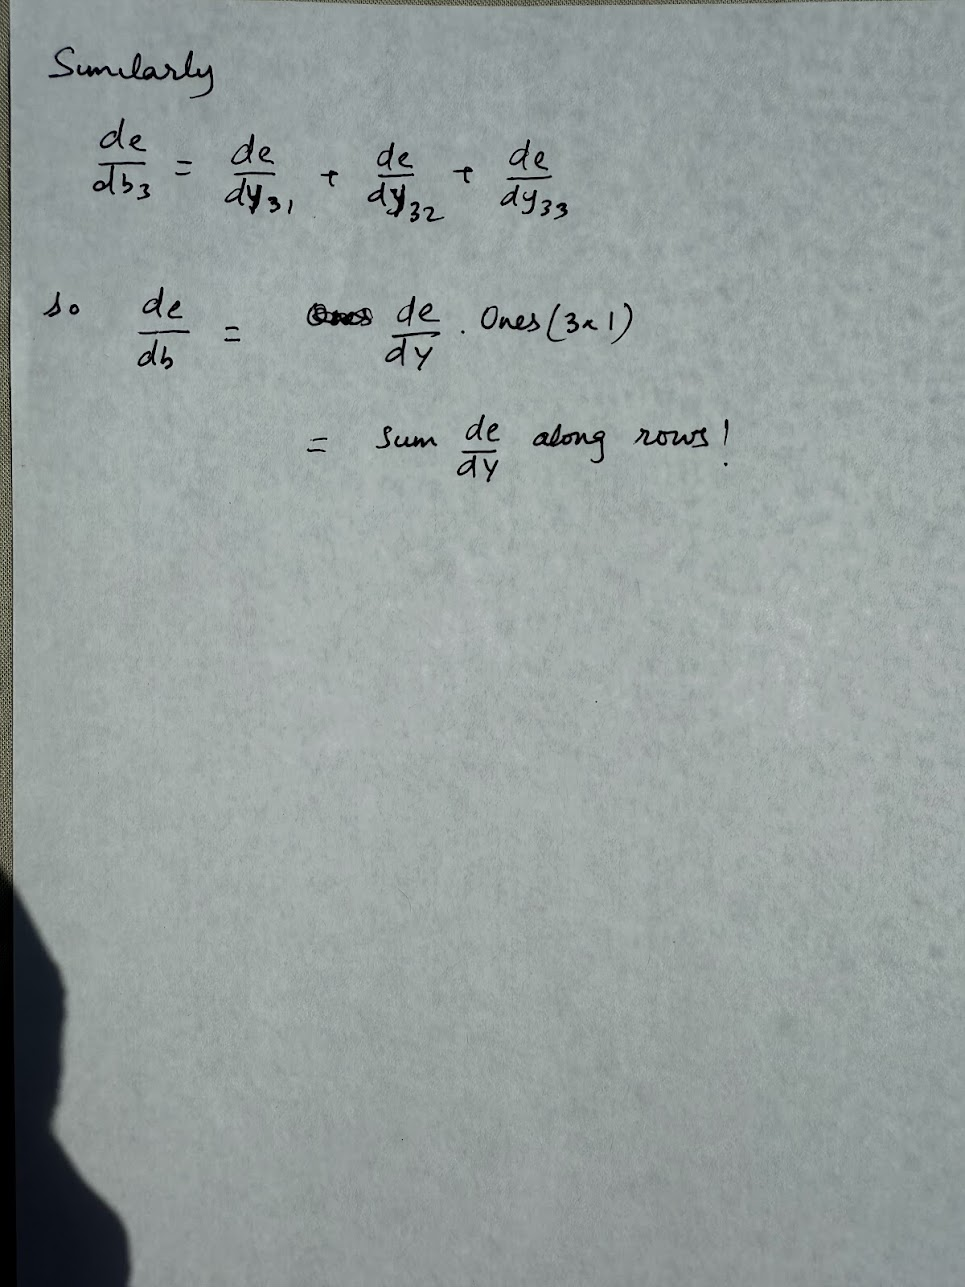 Similarly
de/db3 = de/dy31 + de/dy32 + de/dy33
so de/db = de/dy . Ones(3x1)
= sum de/dy along rows!